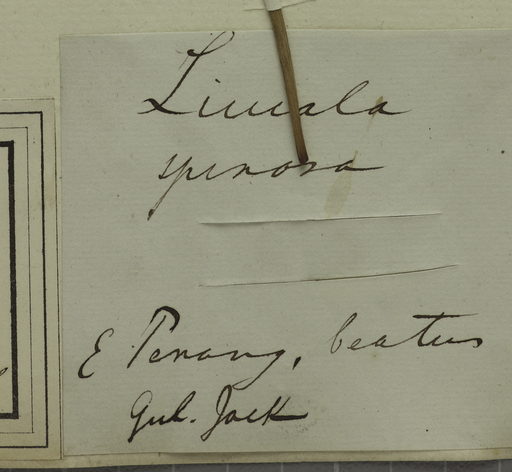 Limala
spinosa
E Penang, beatus
Gul. Jack